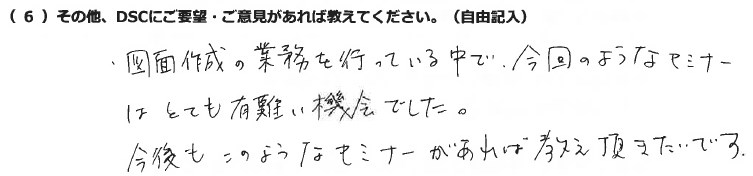 （６）その他、DSCにご要望・ご意見があれば教えてください。（自由記入）
・図面作成の業務を行っている中で、今回のようなセミナー
はとても有難い機会でした。
今後もこのようなセミナーがあれば教え頂きたいです。